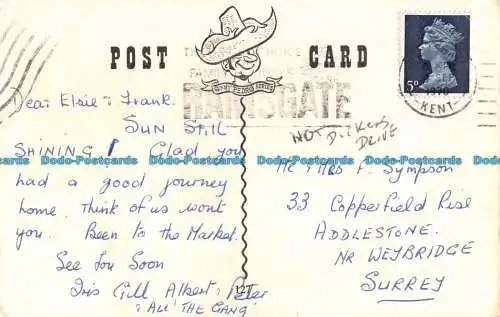 POST CARD
THE FIRST CHOICE FOR
FAMILY HOLIDAYS
RAMSGATE
PEDRO SERIES
5D
1970
KENT
Dear Elsie & Frank.
Sun Still
SHINING! Glad you
had a good journey
home. Think of us wont
you. Been to the Market.
See You Soon
Iris Gill Albert & Peter
& All THE GANG
NOT
DRIVE
Mr & Mrs F. Sympson
33 Copperfield Rise
ADDLESTONE.
NR WEYBRIDGE
SURREY
127
Dodo-Postcards Dodo-Postcards Dodo-Postcards Dodo-Postcards